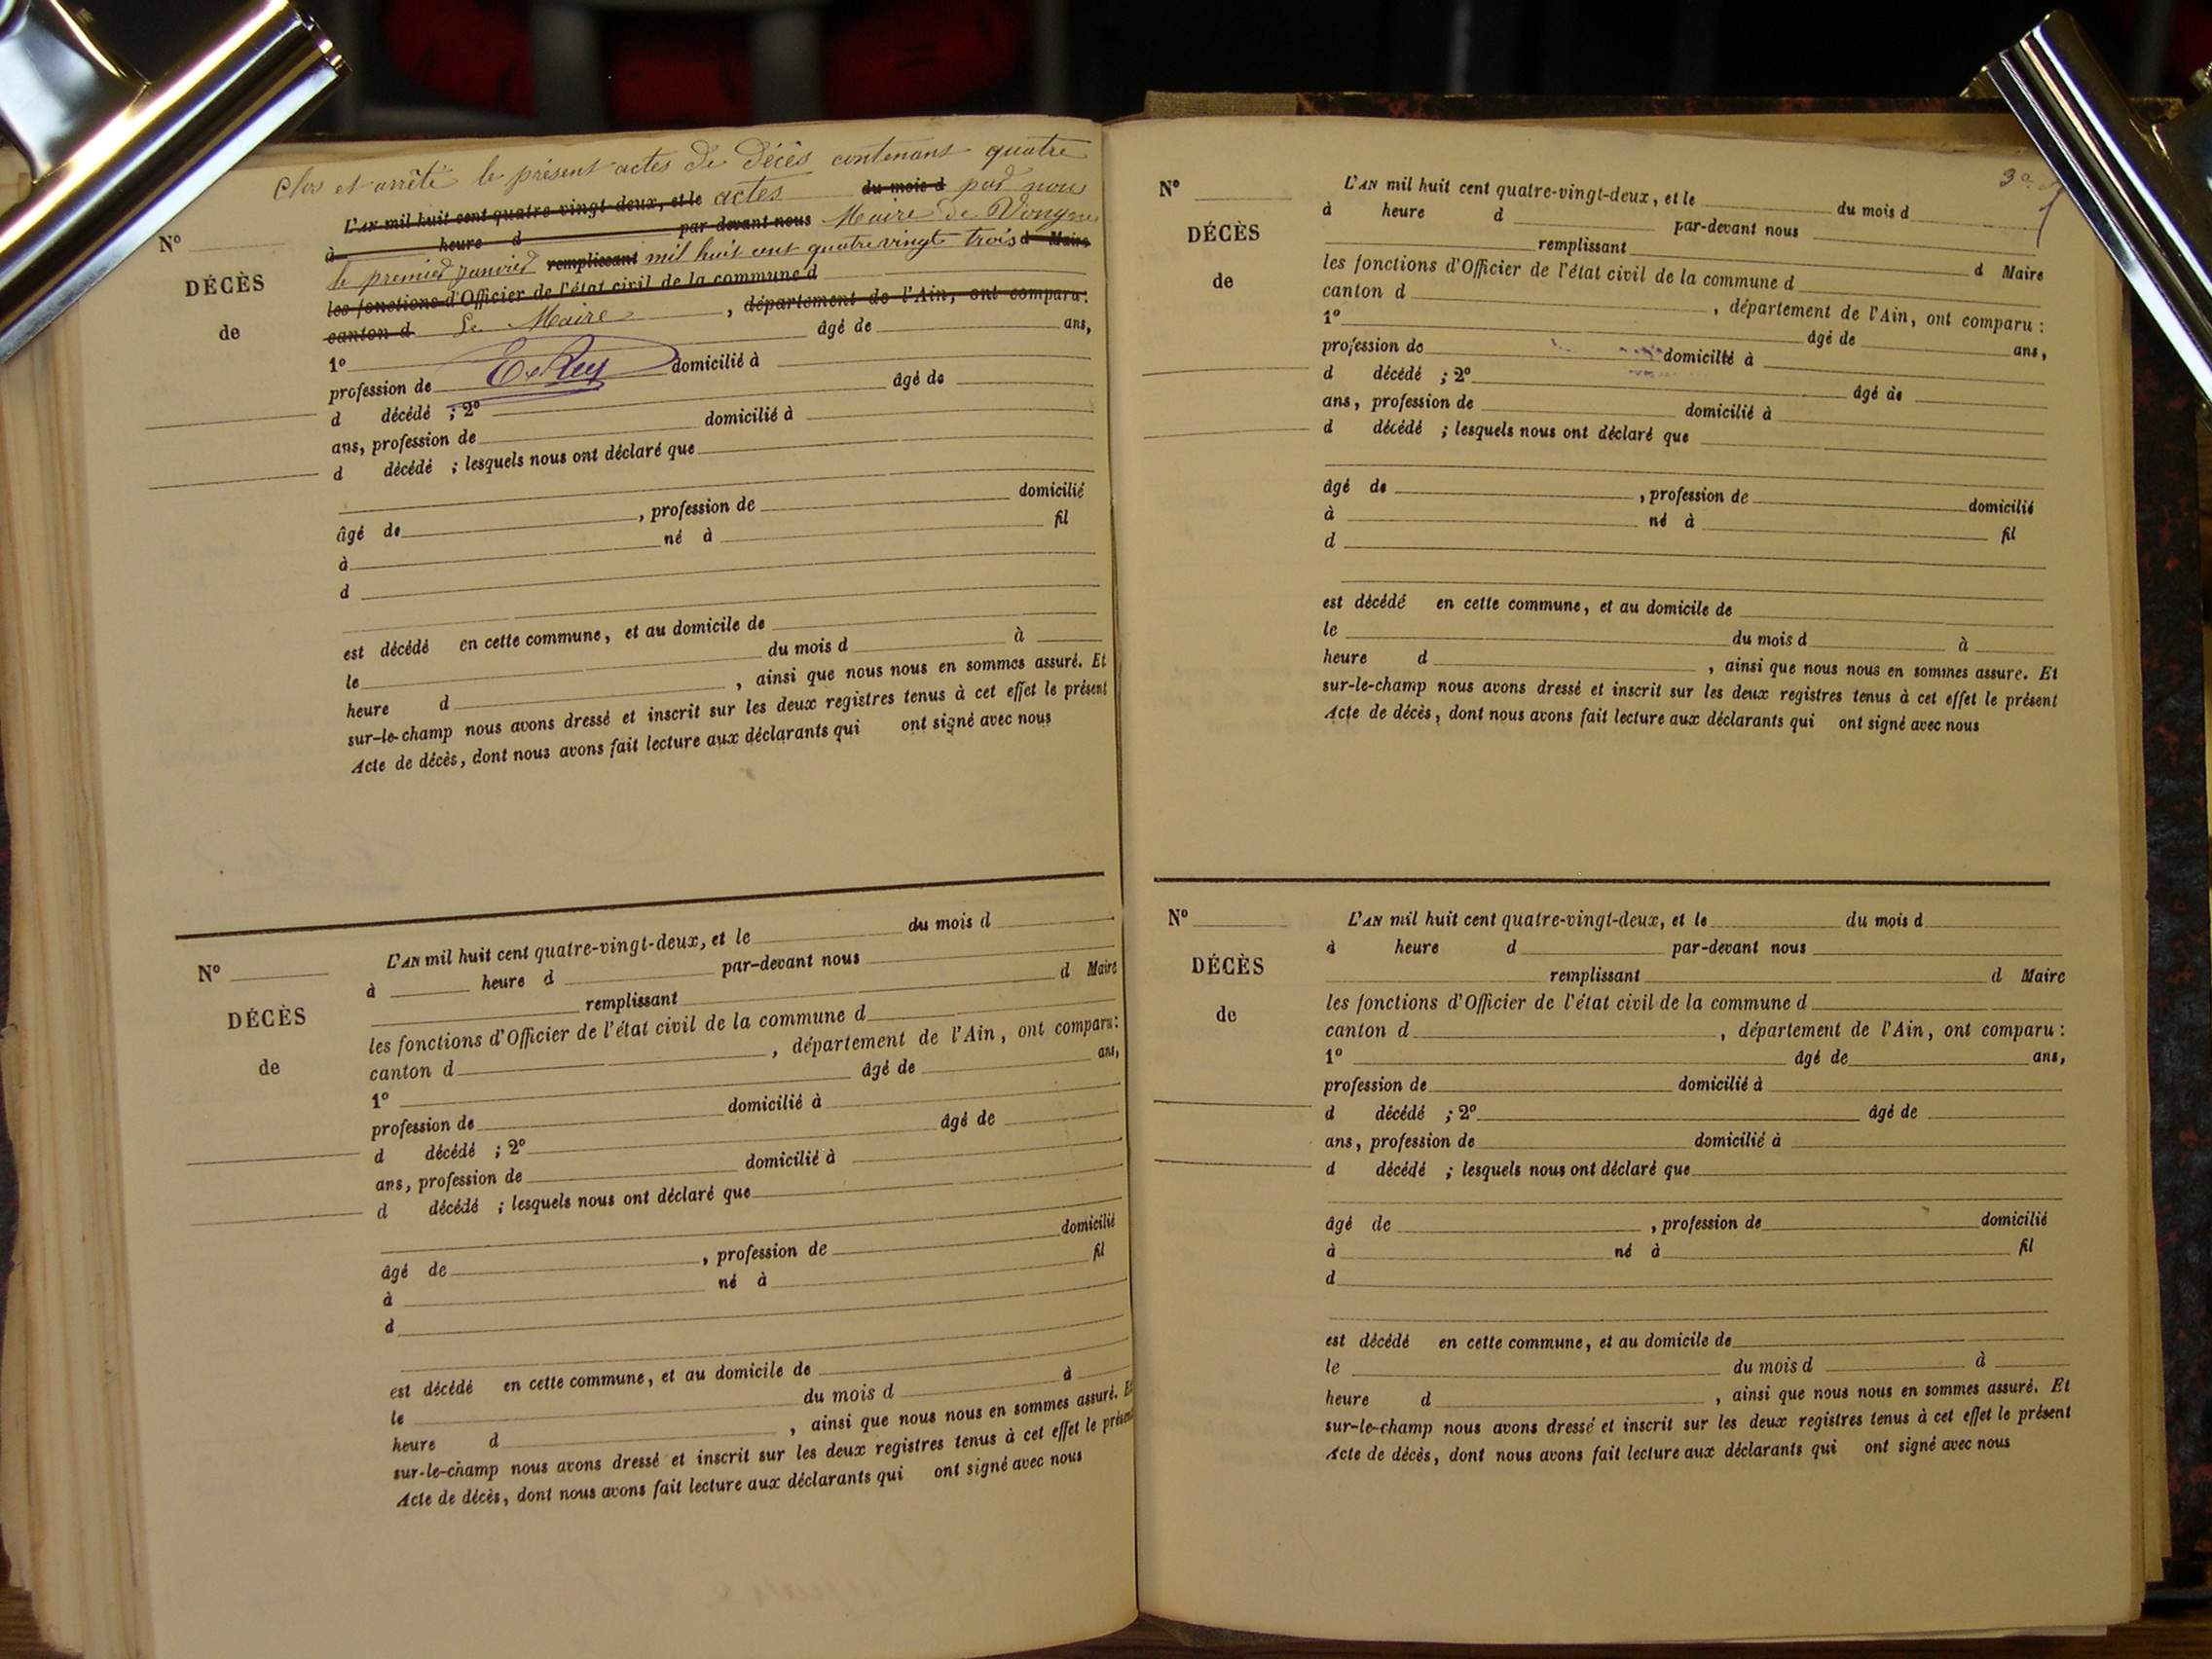 Clos et arrêté le présent actes de décès contenant quatre
L'AN mil huit cent quatre-vingt-deux, et le actes du mois d par nous
N° à heure d par-devant nous Maire de Vongnes
le premier janvier remplissant mil huit cent quatre vingt trois d Maire
DÉCÈS les fonctions d'Officier de l'état civil de la commune d
canton d Le Maire , département de l'Ain, ont comparu:
de 1° âgé de ans,
profession de domicilié à
d décédé ; 2° âgé de
ans, profession de domicilié à
d décédé ; lesquels nous ont déclaré que
âgé de , profession de domicilié
à né à fil
d
est décédé en cette commune, et au domicile de
le du mois d à
heure d , ainsi que nous nous en sommes assuré. Et
sur-le-champ nous avons dressé et inscrit sur les deux registres tenus à cet effet le présent
Acte de décès, dont nous avons fait lecture aux déclarants qui ont signé avec nous
L'AN mil huit cent quatre-vingt-deux, et le du mois d
N° à heure d par-devant nous
remplissant d Maire
DÉCÈS les fonctions d'Officier de l'état civil de la commune d
canton d , département de l'Ain, ont comparu:
de 1° âgé de ans,
profession de domicilié à
d décédé ; 2° âgé de
ans, profession de domicilié à
d décédé ; lesquels nous ont déclaré que
âgé de , profession de domicilié
à né à fil
d
est décédé en cette commune, et au domicile de
le du mois d à
heure d , ainsi que nous nous en sommes assuré. Et
sur-le-champ nous avons dressé et inscrit sur les deux registres tenus à cet effet le présent
Acte de décès, dont nous avons fait lecture aux déclarants qui ont signé avec nous
N° L'AN mil huit cent quatre-vingt-deux, et le du mois d
à heure d par-devant nous
DÉCÈS remplissant d Maire
les fonctions d'Officier de l'état civil de la commune d
de canton d , département de l'Ain, ont comparu :
1° âgé de ans,
profession de domicilié à
d décédé ; 2° âgé de
ans, profession de domicilié à
d décédé ; lesquels nous ont déclaré que
âgé de , profession de domicilié
à né à fil
d
est décédé en cette commune, et au domicile de
le du mois d à
heure d , ainsi que nous nous en sommes assuré. Et
sur-le-champ nous avons dressé et inscrit sur les deux registres tenus à cet effet le présent
Acte de décès, dont nous avons fait lecture aux déclarants qui ont signé avec nous
N° L'AN mil huit cent quatre-vingt-deux, et le du mois d
à heure d par-devant nous
DÉCÈS remplissant d Maire
les fonctions d'Officier de l'état civil de la commune d
de canton d , département de l'Ain, ont comparu :
1° âgé de ans,
profession de domicilié à
d décédé ; 2° âgé de
ans, profession de domicilié à
d décédé ; lesquels nous ont déclaré que
âgé de , profession de domicilié
à né à fil
d
est décédé en cette commune, et au domicile de
le du mois d à
heure d , ainsi que nous nous en sommes assuré. Et
sur-le-champ nous avons dressé et inscrit sur les deux registres tenus à cet effet le présent
Acte de décès, dont nous avons fait lecture aux déclarants qui ont signé avec nous